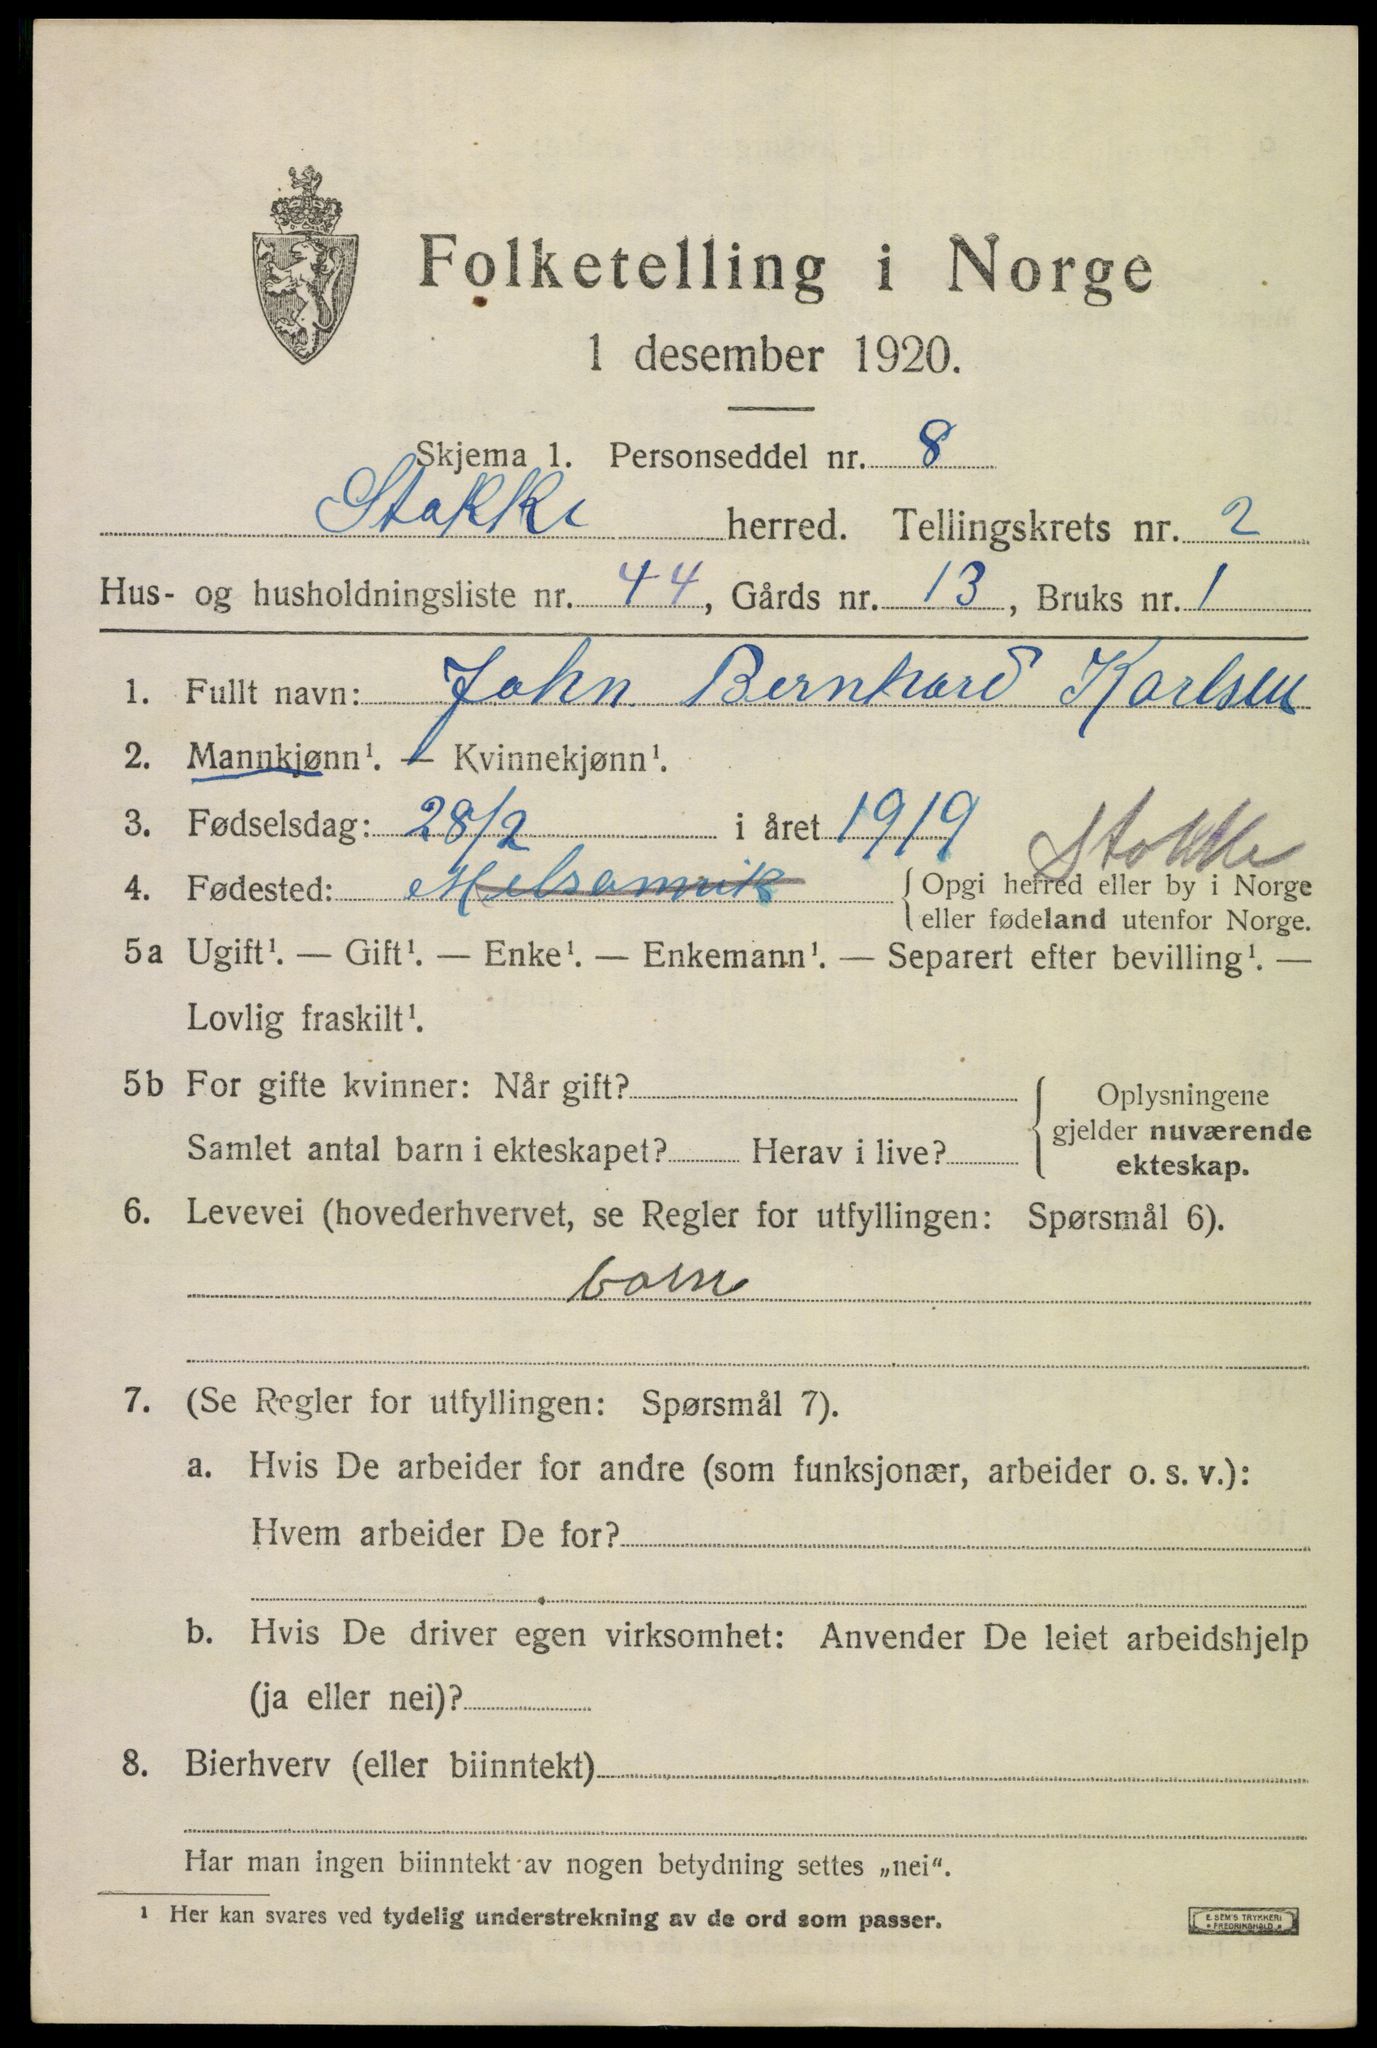 Folketelling i Norge
1 desember 1920.
Skjema 1. Personseddel nr. 8
Stokke herred. Tellingskrets nr. 2
Hus- og husholdningsliste nr. 44, Gårds nr. 13, Bruks nr. 1
1. Fullt navn: John Bernhard Karlsen
2. Mannkjønn¹. — Kvinnekjønn¹.
3. Fødselsdag: 28/2 i året 1919 Stokke
4. Fødested: Melsomvik {Opgi herred eller by i Norge
eller fødeland utenfor Norge.
5a Ugift¹. — Gift¹. — Enke¹. — Enkemann¹. — Separert efter bevilling¹. —
Lovlig fraskilt¹.
5b For gifte kvinner: Når gift? { Oplysningene
gjelder nuværende
Samlet antal barn i ekteskapet? Herav i live?
ekteskap.
6. Levevei (hovederhvervet, se Regler for utfyllingen: Spørsmål 6).
barn
7. (Se Regler for utfyllingen: Spørsmål 7).
a. Hvis De arbeider for andre (som funksjonær, arbeider o. s. v.):
Hvem arbeider De for?
b. Hvis De driver egen virksomhet: Anvender De leiet arbeidshjelp
(ja eller nei)?
8. Bierhverv (eller biinntekt)
Har man ingen biinntekt av nogen betydning settes „nei“.
¹ Her kan svares ved tydelig understrekning av de ord som passer.
E. SEM'S TRYKKERI
• FREDRIKSHALD •